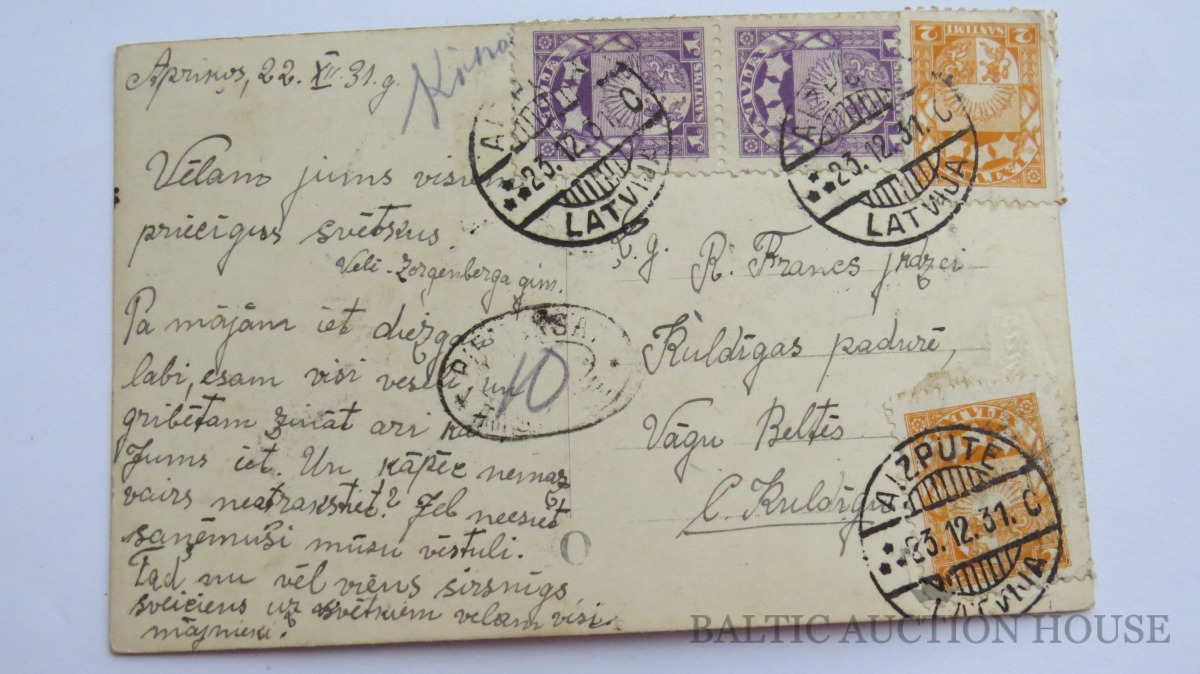 Apriķos, 22. XII 31. g.
Vēlam jums visiem
priecīgus svētkus.
Veli - Zorgenberga gim.
Pa mājām iet diezga
labi, esam visi veseli un
gribētam zināt ari kā
Jums iet. Un kāpēc nemaz
vairs neatrakstiet? Jeb neesiet
saņēmuši mūsu vēstuli.
Tad nu vēl viens sirsnīgs
sveiciens uz svētkiem velam visi
mājnieki.
LATVIJA
1 SANTIMS 1
LATVIJA
1 SANTIMS 1
LATVIJA
2 SANTIMI 2
23.12.31. C
LATVIJA
23.12.31. C
LATVIJA
10
R. Francs jkdzei
Kuldīgas padurē,
Vāgu Beltēs
C. Kuldīgu
LATVIJA
AIZPUTE
23.12.31. C
LATVIJA
BALTIC AUCTION HOUSE